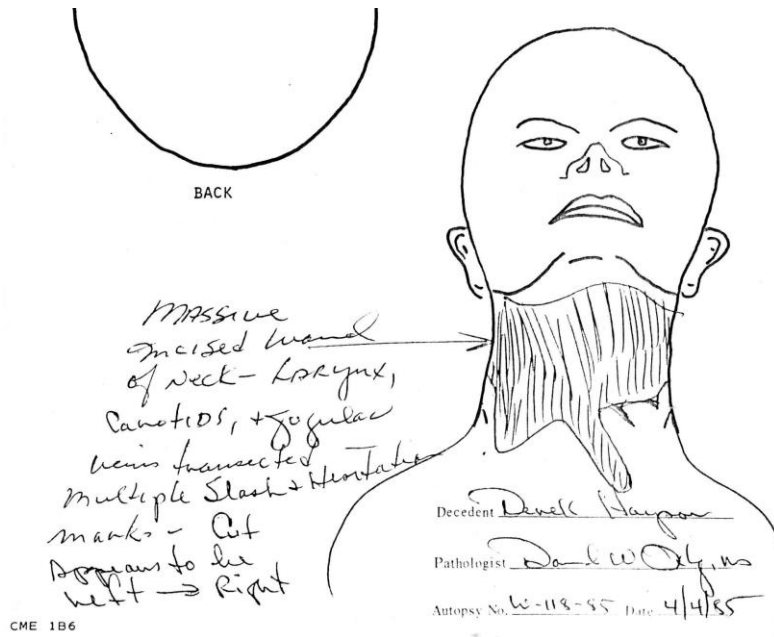 BACK
Massive
incised wound
of Neck - Larynx,
Carotids, + jugular
veins transected
multiple Slash + Hesitation
marks - Cut
Appears to be
Left → Right
Decedent Derek Haysom
Pathologist David W MD
Autopsy No. W-118-85 Date 4/4/85
CME 1B6